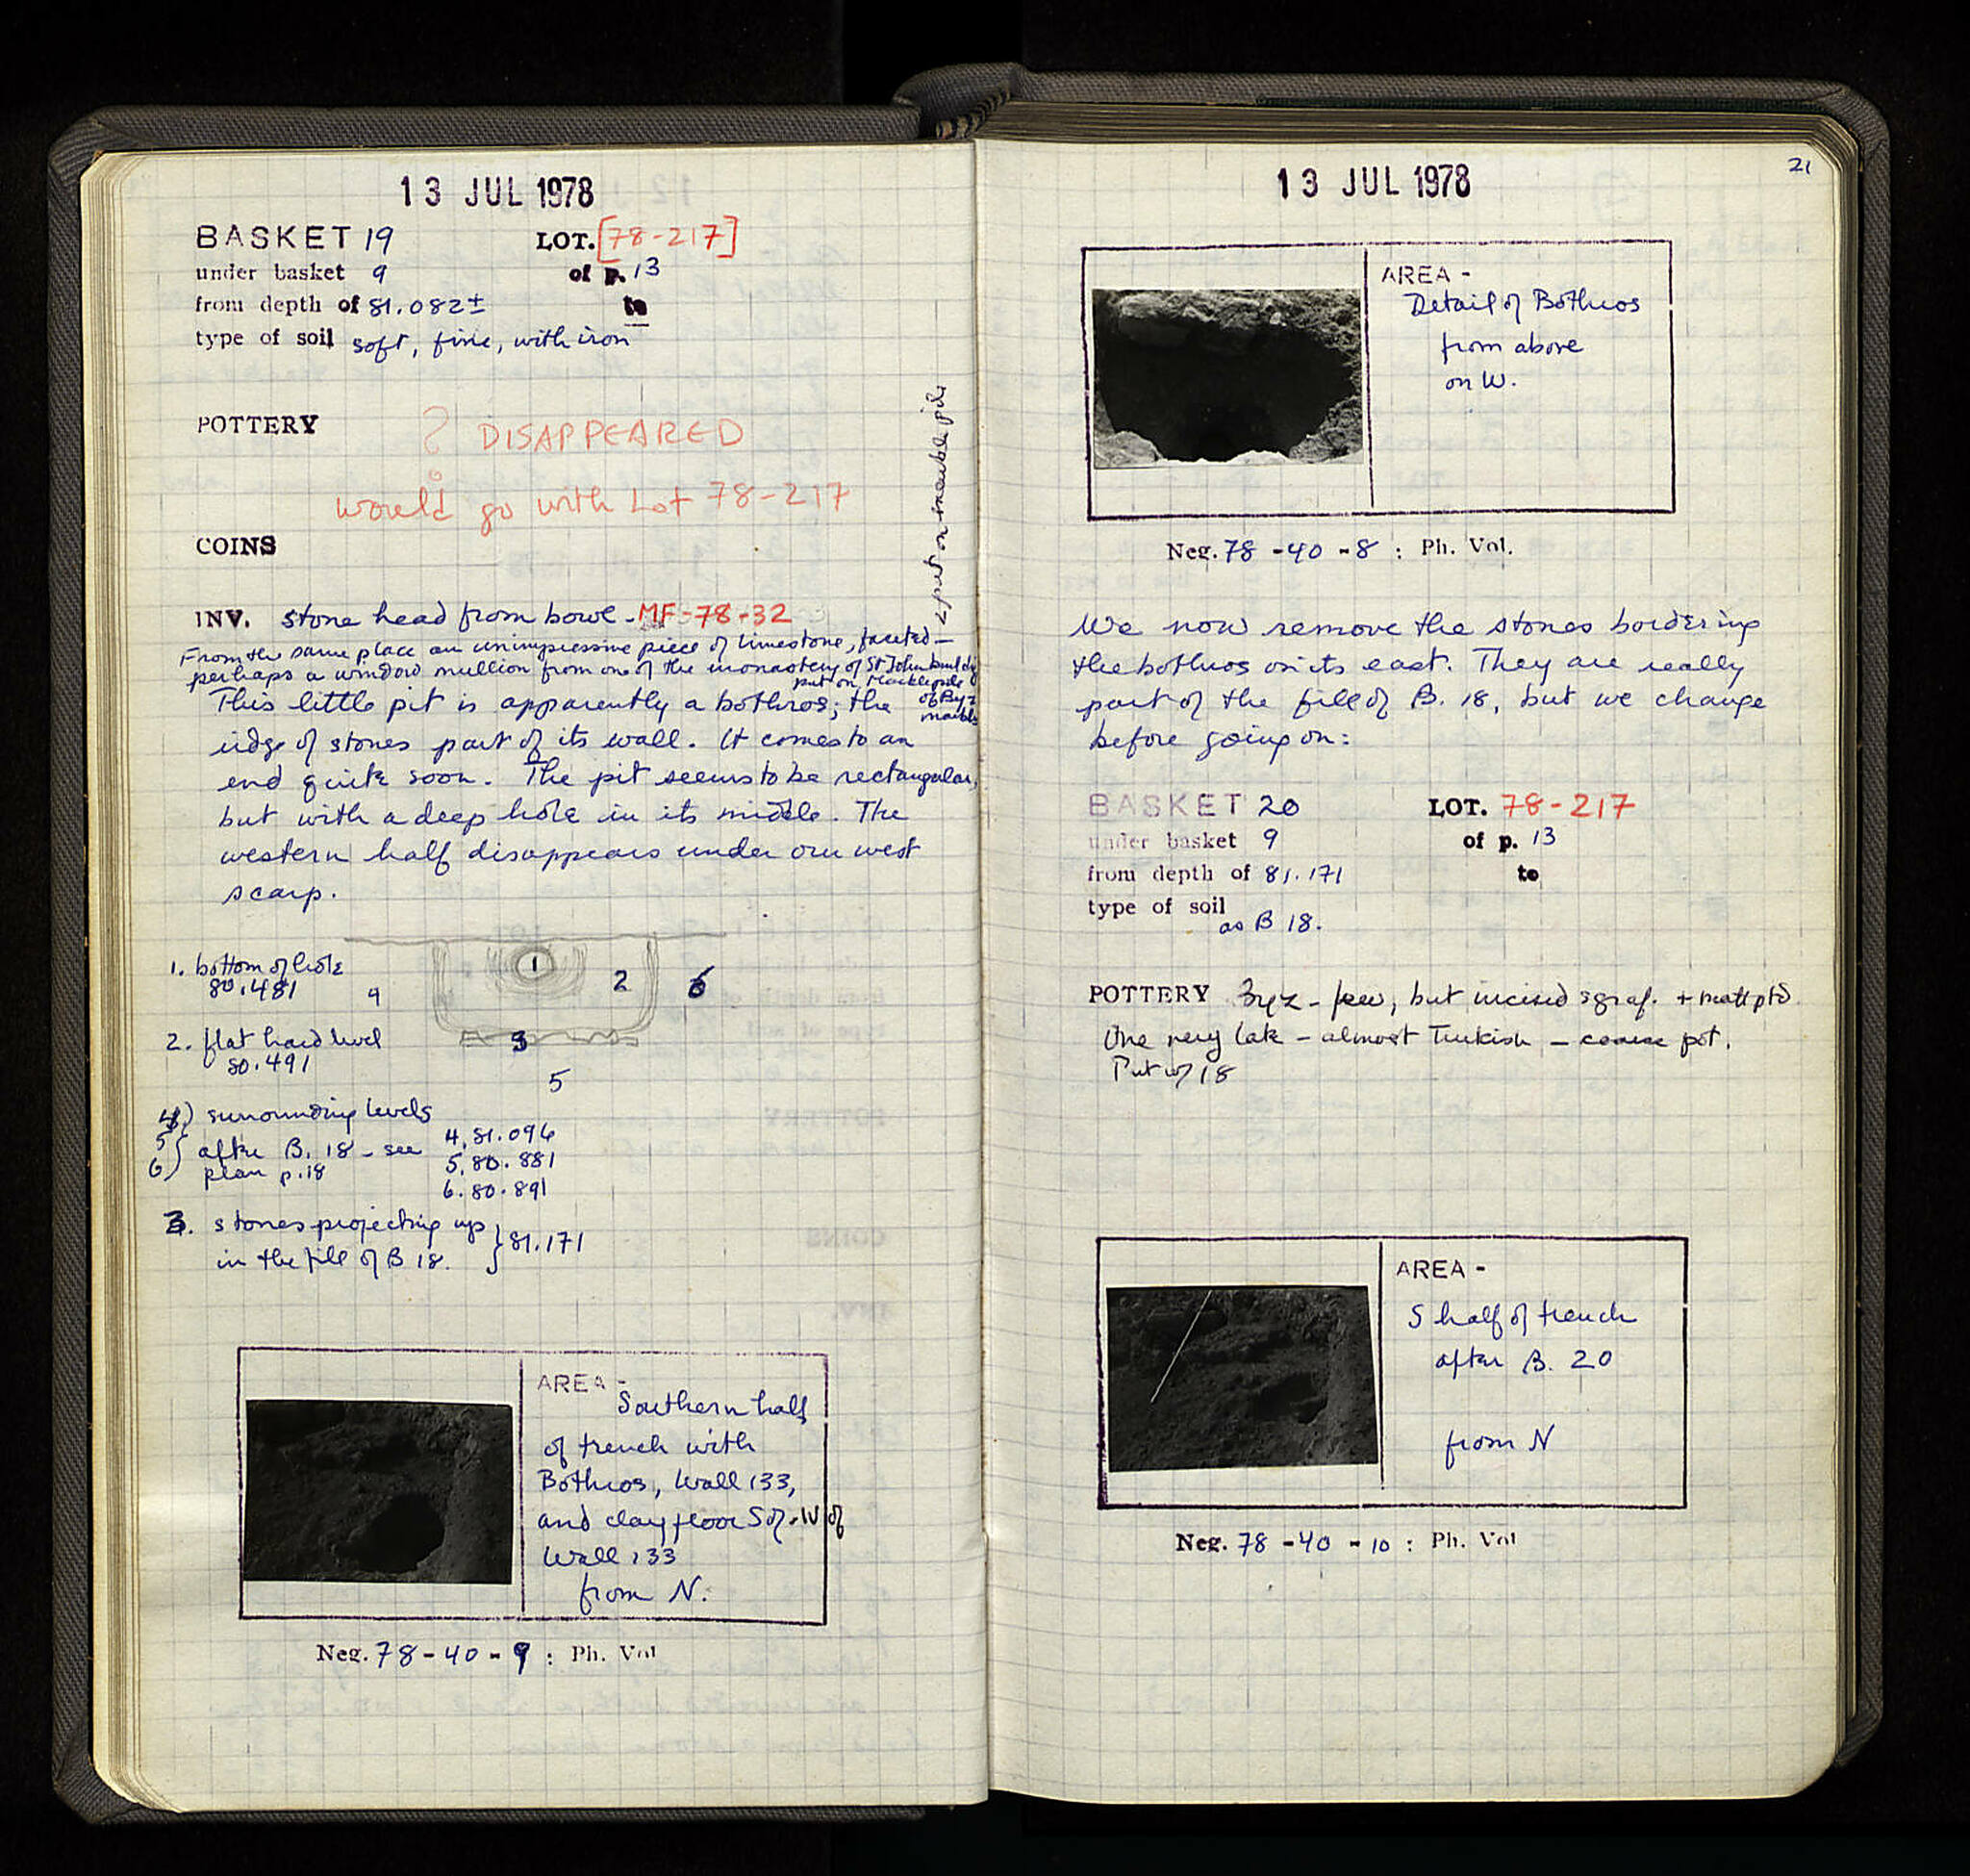 13 JUL 1978
BASKET 19 LOT. [78-217]
under basket 9 of p. 13
from depth of 81.082± to
type of soil soft, fine, with iron
POTTERY ? DISAPPEARED
would go with Lot 78-217
COINS
INV. stone head from bowl - MF-78-32
From the same place an unimpressive piece of limestone, faceted —
perhaps a window mullion from one of the monastery of St John buildg
put on
of Byz
marble
put on marble pile
This little pit is apparently a bothros; the
edge of stones part of its wall. It comes to an
end quite soon. The pit seems to be rectangular,
but with a deep hole in its middle. The
western half disappears under our west
scarp.
1. bottom of hole
80.481
4 1 2 6
3
5
2. flat hard level
80.491
4) surrounding levels
5} after B. 18 - see 4. 81.096
6) plan p. 18 5. 80.881
6. 80.891
3. stones projecting up
in the fill of B 18. } 81.171
AREA -
Southern half
of trench with
Bothros, Wall 133,
and clay floor S of + W of
Wall 133
from N.
Neg. 78-40-9 : Ph. Vol
21
13 JUL 1978
AREA -
Detail of Bothros
from above
on W.
Neg. 78-40-8 : Ph. Vol.
We now remove the stones bordering
the bothros on its east. They are really
part of the fill of B. 18, but we change
before going on:
BASKET 20 LOT. 78-217
under basket 9 of p. 13
from depth of 81.171 to
type of soil
as B 18.
POTTERY Byz - few, but incised sgraf. + matt ptd
One very late - almost Turkish - coarse pot.
Put w/ 18
AREA -
S half of trench
after B. 20
from N
Neg. 78-40-10 : Ph. Vol